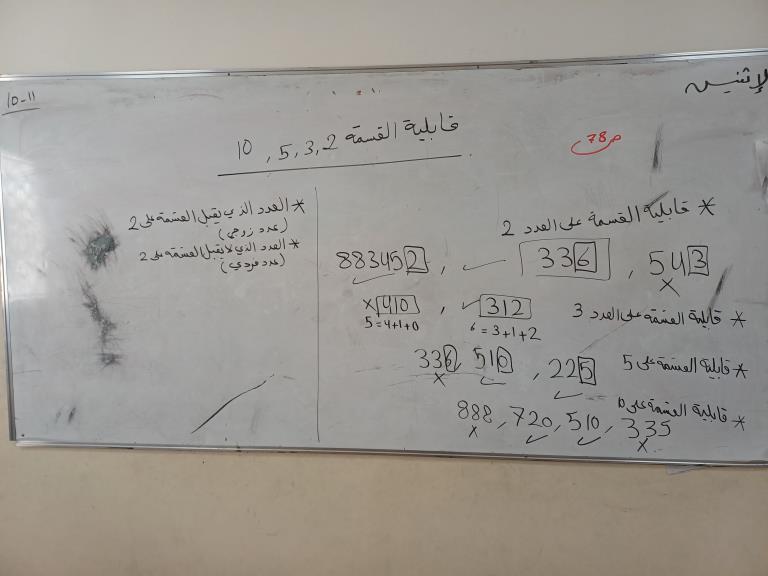 الإثنين
10-11
قابلية القسمة 2 , 3 , 5 , 10
ص 78
* قابلية القسمة على العدد 2
543 × , 336 ✓ , 883452 ✓
* قابلية القسمة على العدد 3
312 ✓ , 410 ×
6 = 3+1+2
5 = 4+1+0
* قابلية القسمة على 5
225 ✓ , 510 ✓ , 336 ×
* قابلية القسمة على 10
335 × , 510 ✓ , 720 ✓ , 888 ×
* العدد الذي يقبل القسمة على 2
(عدد زوجي)
* العدد الذي لا يقبل القسمة على 2
(عدد فردي)